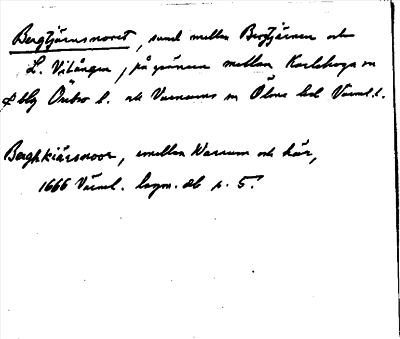 Bergtjärnsmoret, saml mellan Bergtjärnen och
L. Vitången, på gränsen mellan Karlskoga sn
Ö. blg Örebro l. och Varnums sn Ölme hd Värml. l.
Berghkiärsmoor, emellan Warnum och här,
1666 Värml. lagm. db s. 5.